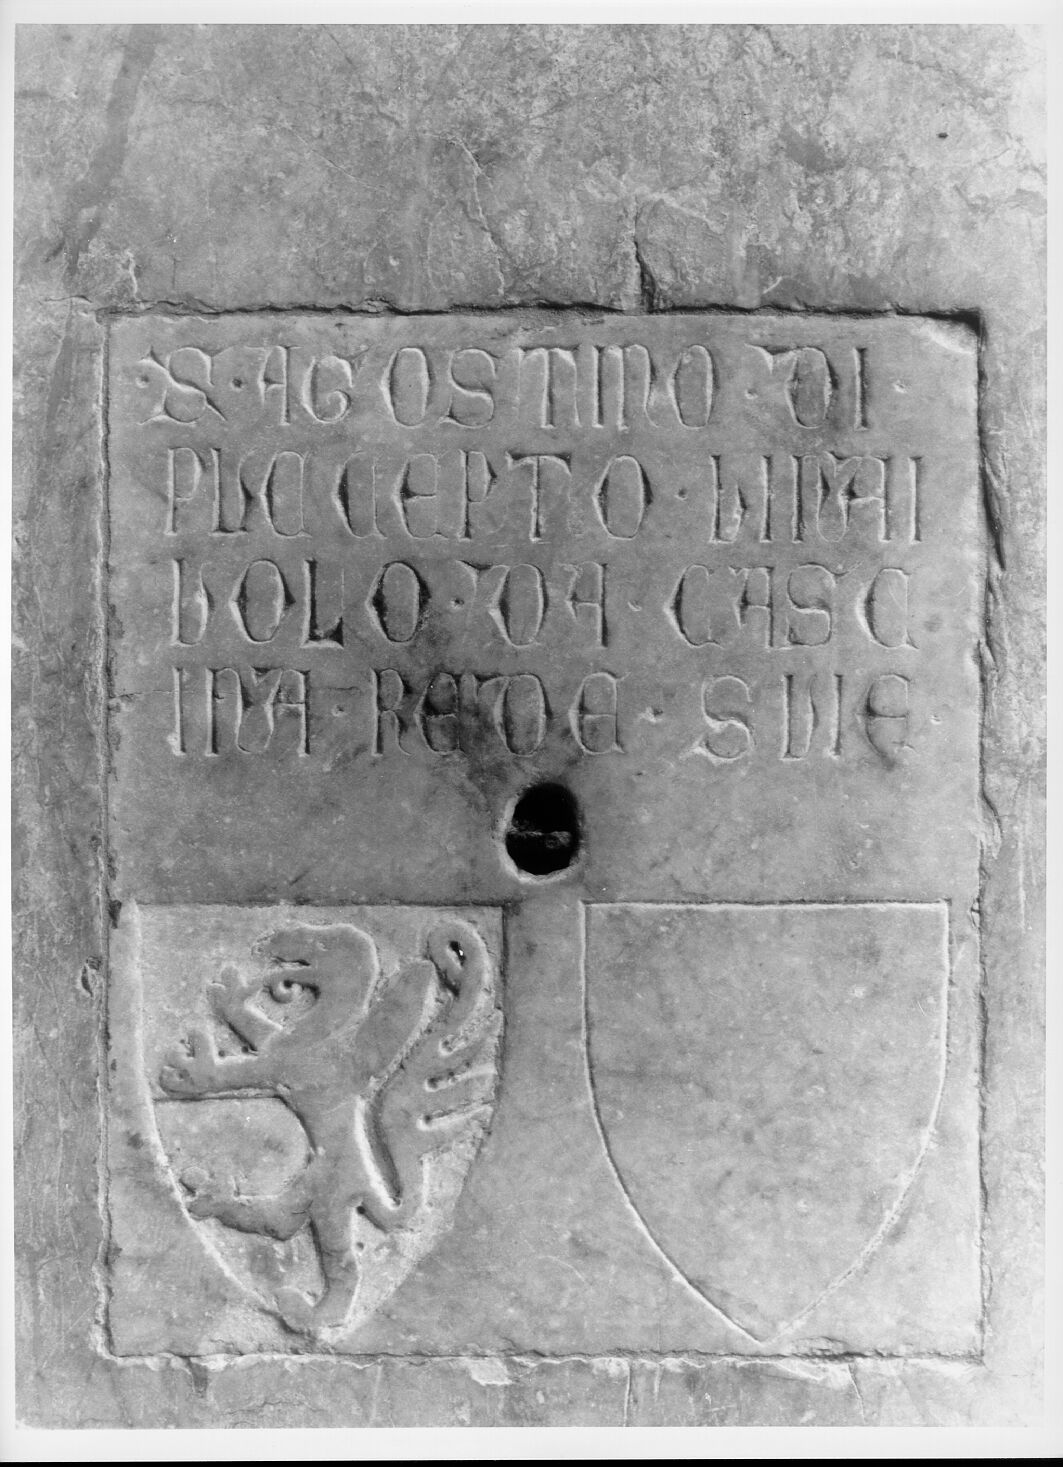 ·S·AGOSTINO·DI·
PUCCEPTO·UINAI
UOLO·DA·CASC
INA·REDE·SUIE·